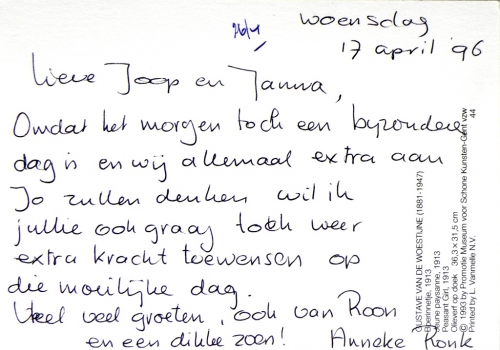 26/4
woensdag
17 april '96
Lieve Joop en Janna,
Omdat het morgen toch een byzondere
dag is en wij allemaal extra aan
Jo zullen denken wil ik
jullie ook graag toch weer
extra kracht toewensen op
die moeilijke dag.
Veel veel groeten, ook van Roon
en een dikke zoen! Anneke
GUSTAVE VAN DE WOESTIJNE (1881-1947)
Boerinnetje, 1913
Jeune paysanne, 1913
Peasant Girl, 1913
Olieverf op doek 36,3 x 31,5 cm
© 1993 by Promotie Museum voor Schone Kunsten-Gent vzw
Printed by L. Vanmelle N.V.
44